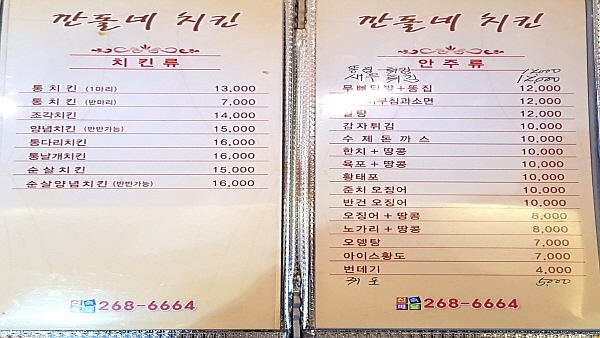 깐돌네 치킨
치킨류
통 치 킨 (1마리) 13,000
통 치 킨 (반마리) 7,000
조각치킨 14,000
양념치킨 (반반가능) 15,000
통다리치킨 16,000
통날개치킨 16,000
순살치킨 15,000
순살양념치킨 (반반가능) 16,000
268-6664
깐돌네 치킨
안주류
똥집 튀김 12000
새우 튀김 12000
무뼈닭발+똥집 12,000
무침과소면 12,000
알탕 12,000
감자튀김 10,000
수제돈까스 10,000
한치+땅콩 10,000
육포+땅콩 10,000
황태포 10,000
준치 오징어 10,000
반건 오징어 10,000
오징어+땅콩 8,000
노가리+땅콩 8,000
오뎅탕 7,000
아이스황도 7,000
번데기 4,000
쥐 포 5000
신속배달 268-6664